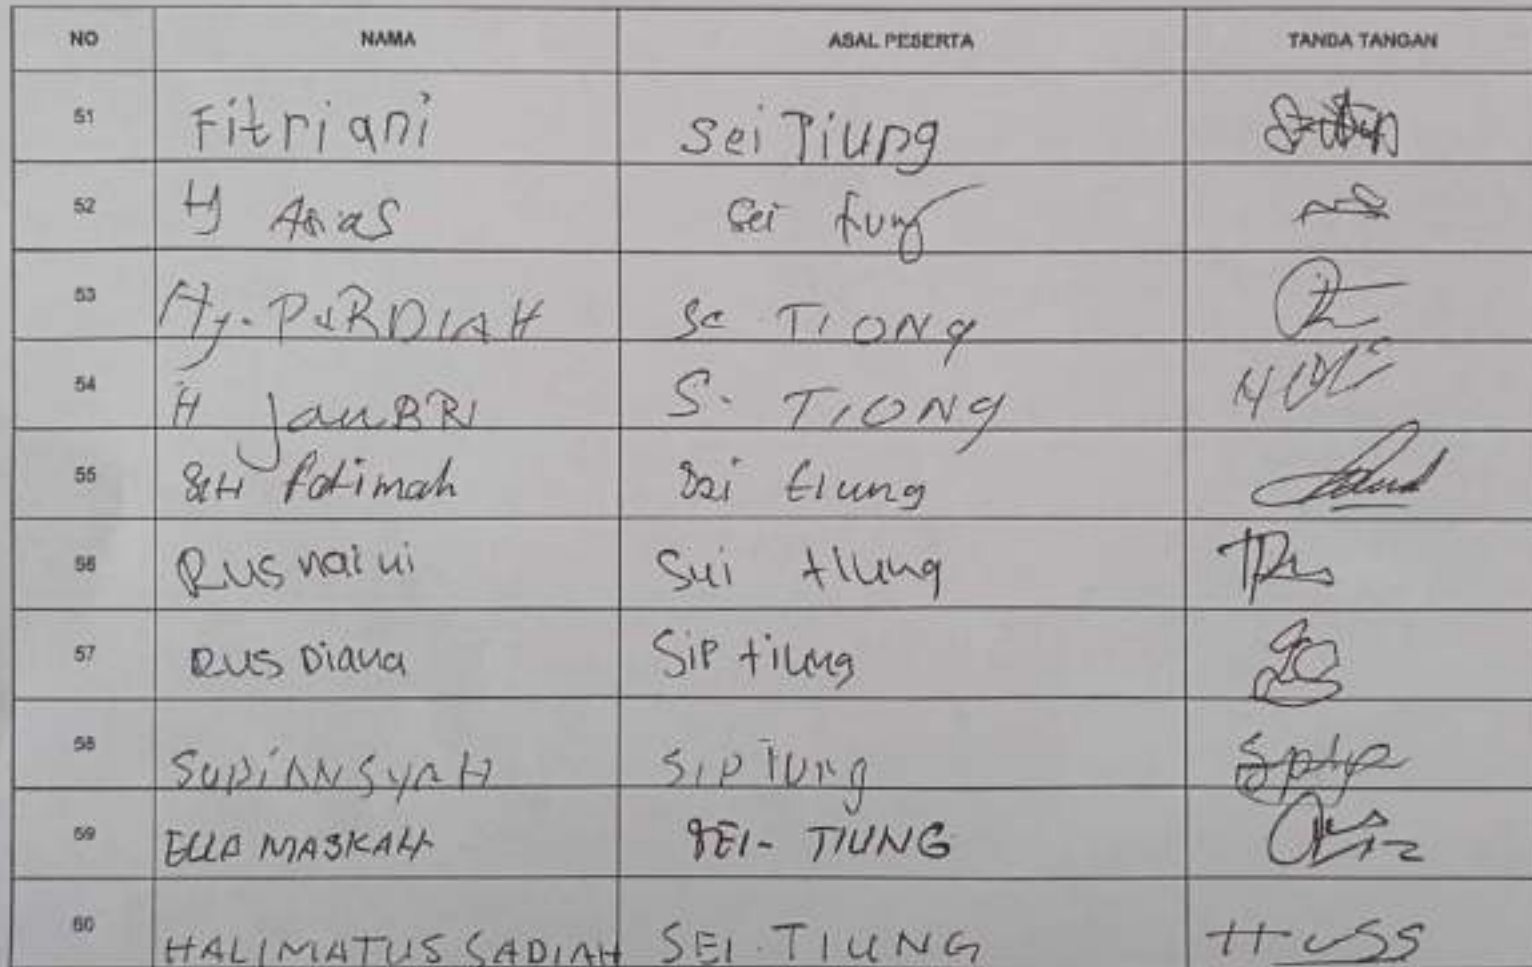 NO NAMA ASAL PESERTA TANDA TANGAN
51 Fitriani Sei Tiung
52 Hj Asias Sei tiung
53 Hj. PURDIAH Se TIONG
54 H JauBRI S. TIONG
55 Siti fatimah Sei tiung
56 Rusnaini Sui tiung
57 RUSDiana Sip tiung
58 SUPiANSyAH SIP Tiung
59 ELLA MASKAH SEI - TIUNG
60 HALIMATUS SADIAH SEI. TIUNG